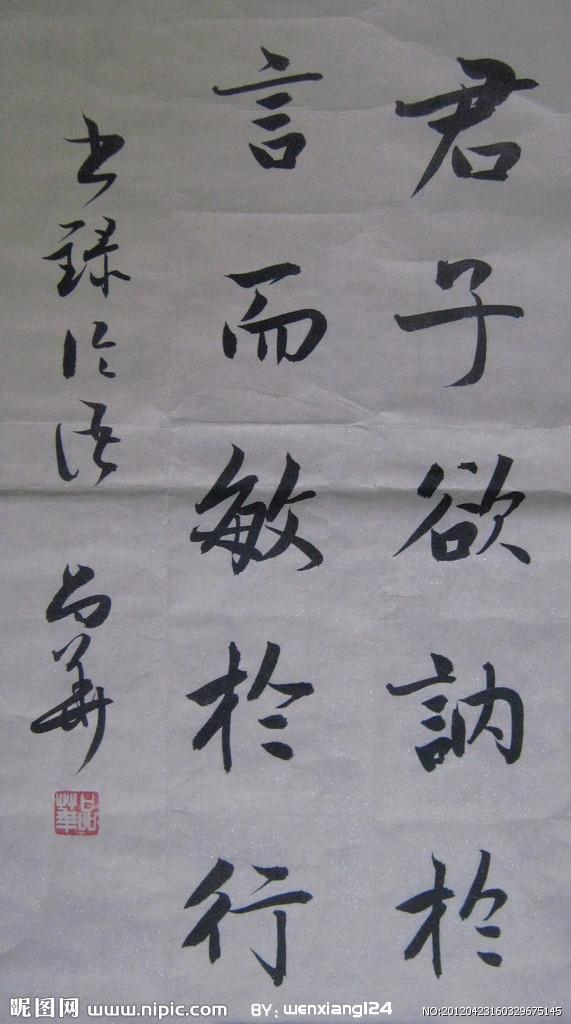 君子欲訥於
言而敏於行
书録论语
華
昵图网 www.nipic.com BY: wenxiang124 NO:20120423160329675145